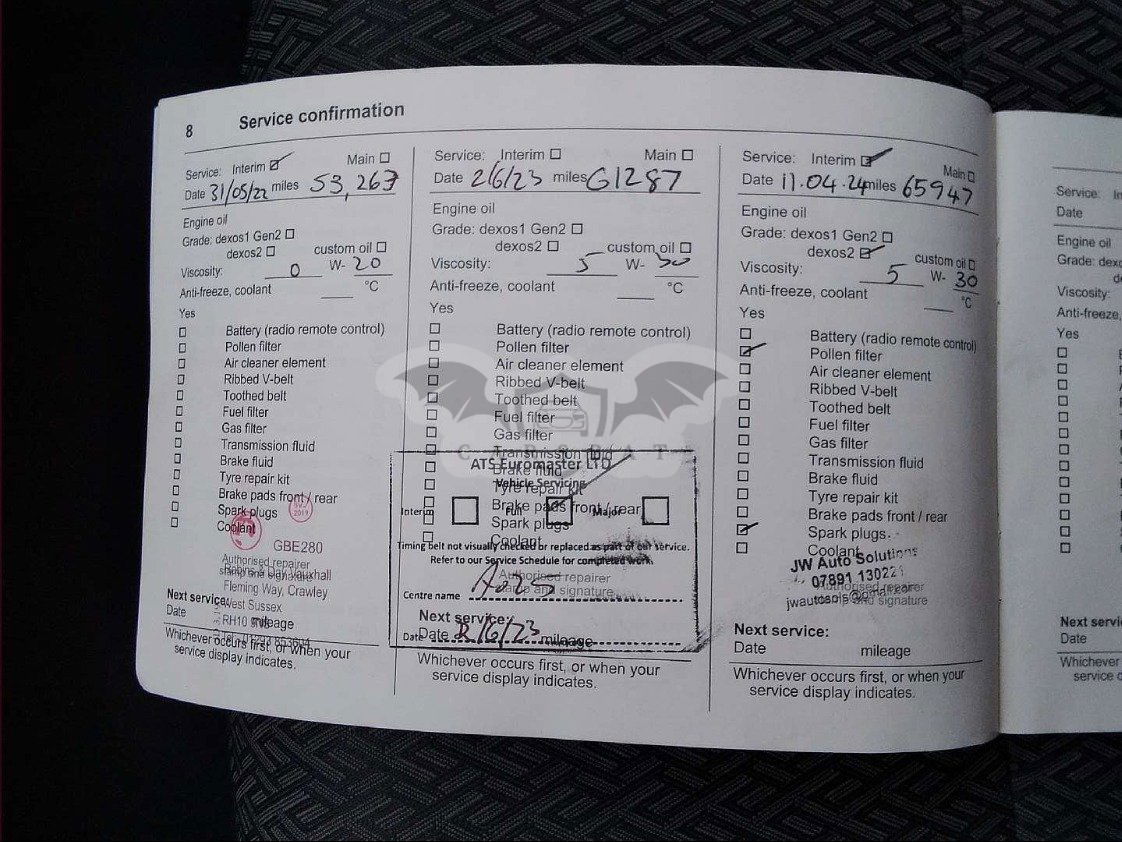 8 Service confirmation
Service: Interim Main
Date 31/05/22 miles 53,267
Engine oil
Grade: dexos1 Gen2
dexos2 custom oil
Viscosity: 0 W- 20
Anti-freeze, coolant °C
Yes
Battery (radio remote control)
Pollen filter
Air cleaner element
Ribbed V-belt
Toothed belt
Fuel filter
Gas filter
Transmission fluid
Brake fluid
Tyre repair kit
Brake pads front / rear
Spark plugs
Coolant
GBE280
Authorised repairer
stamp and signature
Vauxhall
Fleming Way, Crawley
West Sussex
RH10
Next service:
Date mileage
Whichever occurs first, or when your
service display indicates.
Service: Interim Main
Date 2/6/23 miles 61287
Engine oil
Grade: dexos1 Gen2
dexos2 custom oil
Viscosity: 5 W- 30
Anti-freeze, coolant °C
Yes
Battery (radio remote control)
Pollen filter
Air cleaner element
Ribbed V-belt
Toothed belt
Fuel filter
Gas filter
Transmission fluid
ATS Euromaster LTD
Brake fluid
Vehicle Servicing
Tyre repair kit
Brake pads front / rear
Interim Full Major
Spark plugs
Coolant
Timing belt not visually checked or replaced as part of our service.
Refer to our Service Schedule for completed work.
Authorised repairer
stamp and signature
Centre name
Next service:
Date
Date 2/6/23 mileage
Whichever occurs first, or when your
service display indicates.
Service: Interim Main
Date 11.04.24 miles 65947
Engine oil
Grade: dexos1 Gen2
dexos2 custom oil
Viscosity: 5 W- 30
Anti-freeze, coolant °C
Yes
Battery (radio remote control)
Pollen filter
Air cleaner element
Ribbed V-belt
Toothed belt
Fuel filter
Gas filter
Transmission fluid
Brake fluid
Tyre repair kit
Brake pads front / rear
Spark plugs
Coolant
JW Auto Solutions
Authorised repairer
stamp and signature
Next service:
Date mileage
Whichever occurs first, or when your
service display indicates.
Service:
Date
Engine oil
Grade:
Viscosity:
Anti-freeze,
Yes
Date
Whichever
CARSBAT